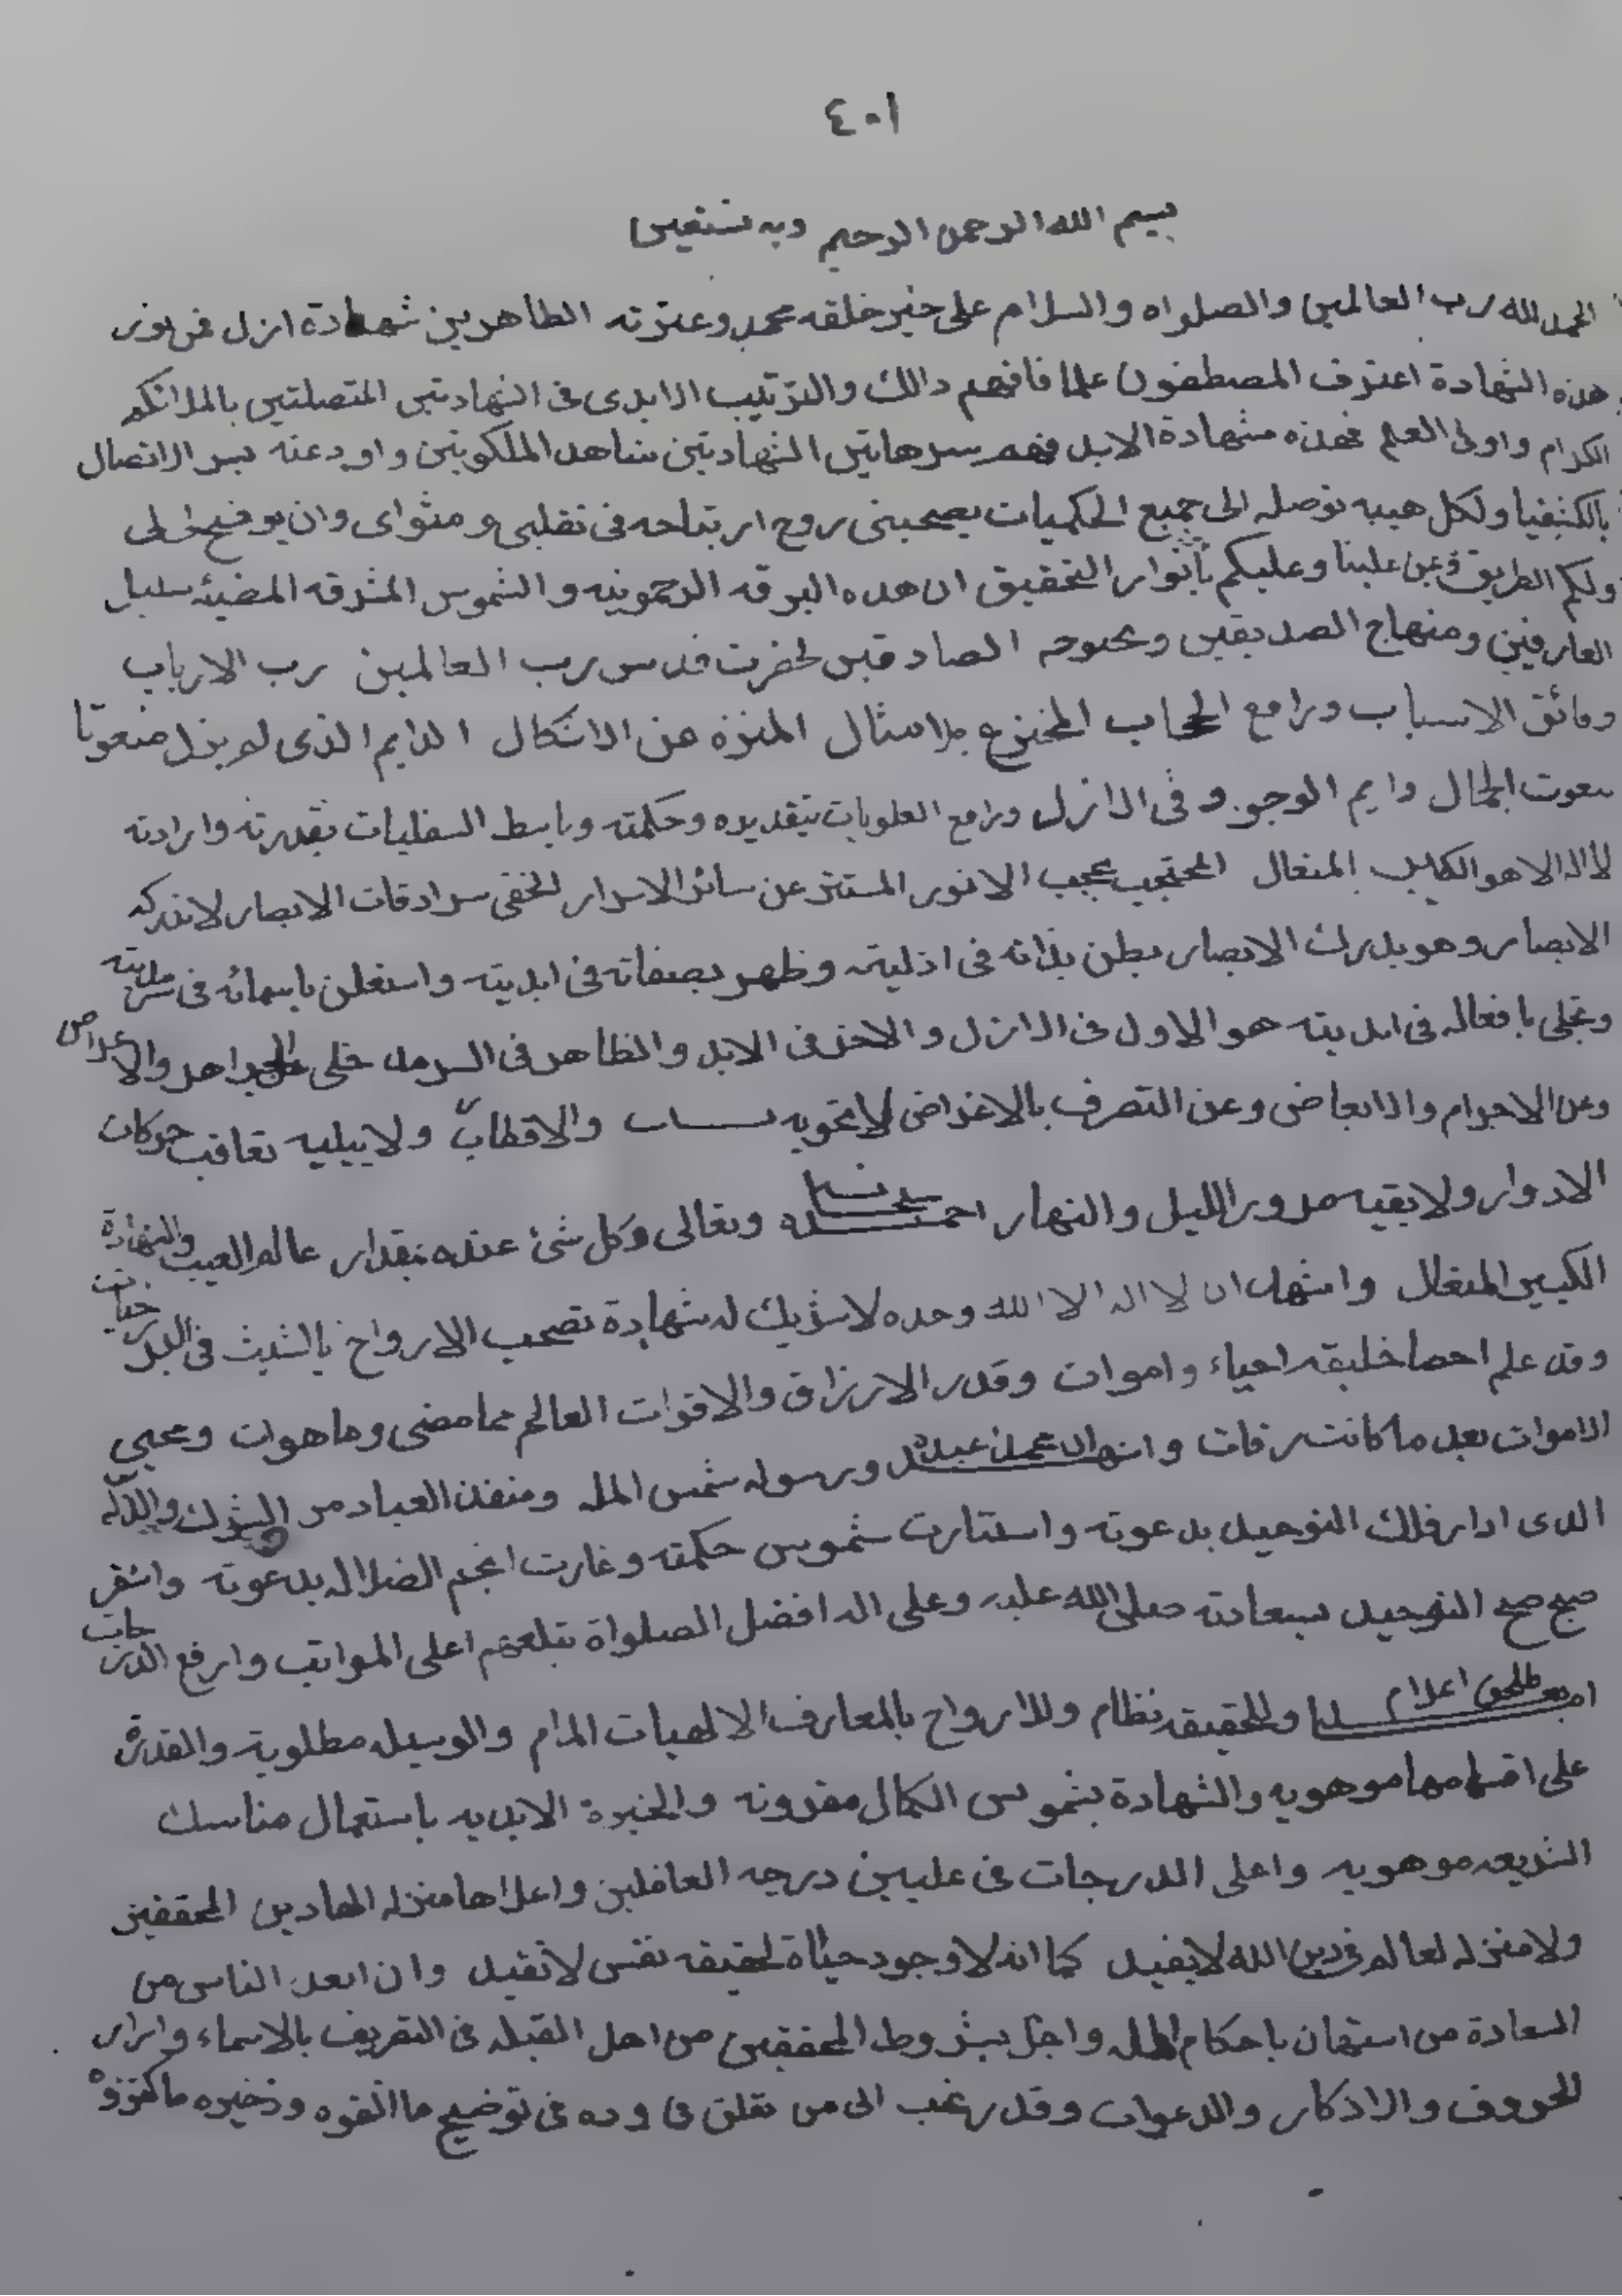 ٤٠١
بسم الله الرحمن الرحيم وبه نستعين
الحمد لله رب العالمين والصلواه والسلام على خير خلقه محمد وعترته الطاهرين شهادة ازل فمن نور
هذه الشهادة اعترف المصطفون علما فافهم دالك والترتيب الابدى فى الشهادتين المتصلتين بالملائكه
الكرام واولى العلم فهذه شهادة الابد فهم سر هاتين الشهادتين شاهد الملكوتين واودعته بسر الاتصال
ولكل هيبه توصله الى جميع الحكميات يصحبنى روح ارتياحه فى تقلبى ومثواى وان يوضح لى
ولكم الطريق علينا وعليكم بأنوار التحقيق ان هده البرقه الرحمونيه والشموس المشرقه المضيئه سبيل
العارفين ومنهاج الصديقين الصادقين لحضرت قدس رب العالمين رب الارباب
الاسباب ورافع الحجاب المخترع بلا مثال المنزه عن الاشكال الدايم الذى لم يزل منعوتا
بنعوت الجمال دايم الوجود فى الازل ورافع العلويات بتقديره وحكمته وباسط السفليات بقدرته وارادته
لا اله الا هو الكبير المتعال المحتجب بحجب الانور المستتر عن سائر الاسرار الخفى سرادقات الابصار لا تدركه
الابصار وهو يدرك الابصار بطن بذاته فى ازليته وظهر بصفاته فى ابديته واستعلن باسمائه فى سرمديته
وتجلى بافعاله فى ابديته هو الاول فى الازل والاخر فى الابد والظاهر فى السرمد والاعراض
وعن الاجرام والابعاض وعن التصرف بالاغراض لا تحويه والاقطاب ولا يبليه تعاقب حركات
الادوار ولا يفنيه مرور الليل والنهار وتعالى وكل شئ عنده بمقدار عالم الغيب والشهادة
الكبير المتعال واشهد ان لا اله الا الله وحده لا شريك له شهادة تصحب الارواح فى البرزخيات
وقد علم احصا خليقه احياء واموات وقدر الارزاق والاقوات العالم مما مضى وما هوات ومحيى
الاموات بعد ما كانت رفات واشهد ان محمد عبده ورسوله شمس المله ومنقذ العباد من الشرك والذله
الدى ادار فلك التوحيد بدعوته واستنارت شموس حكمته وغارت انجم الضلاله بدعوته
صبح التوحيد بسعادته صلى الله عليه وعلى اله افضل الصلواة تبلغهم اعلى المراتب وارفع الدرجات
وللحقيقه نظام وللارواح بالمعارف الالهيات المرام والوسيله مطلوبة والقدرة
على اقسامها موهوبه والشهادة بشموس الكمال مقرونه والخيرة الابديه باستعمال مناسك
الشريعه موهوبه واعلى الدرجات فى عليين درجه العاقلين واعلاها منزله الهادين المحققين
ولا منزله لعالم فى دين الله لا يفيد كما انه لا وجود حياة لحقيقه نفس لا تفيد وان ابعد الناس من
السعادة من استهان باحكام المله واخل بشروط المحققين من اهل القبله فى التعريف بالاسماء واسرار
الحروف والاذكار والدعوات وقد رغب الى من تعلق فى وده فى توضيح ما القوه وذخيره ما كنزوه